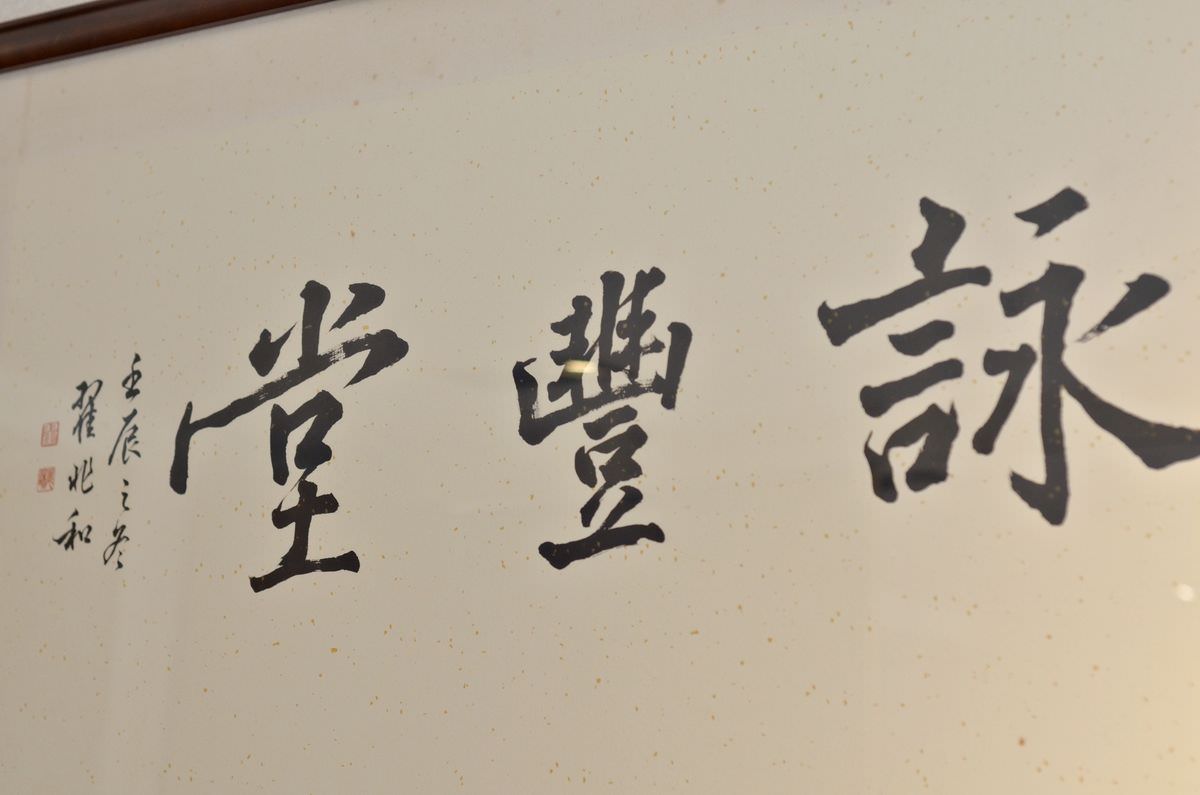 詠豐堂
壬辰之冬
翟兆和